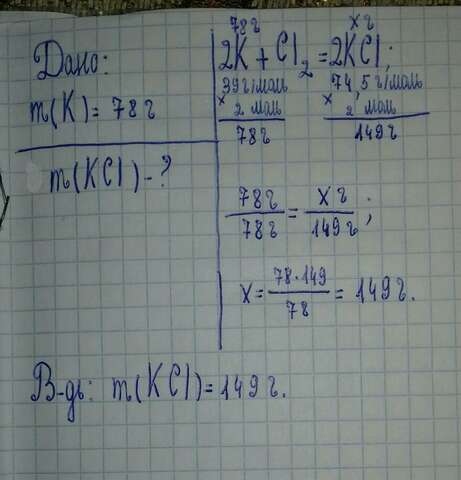 Дано:
m(K) = 78г
m(KCl) - ?
78г хг
2K + Cl2 = 2KCl;
39г/моль 74,5г/моль
× 2 моль × 2 моль
78г 149г
78г/78г = хг/149г;
х = 78·149/78 = 149г.
В-дь: m(KCl) = 149г.